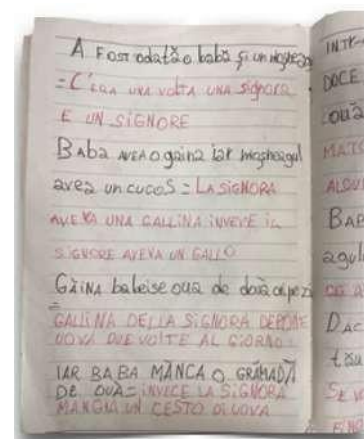 A FOST odată o babă și un moșneag
= C'ERA UNA VOLTA UNA SIGNORA
E UN SIGNORE
Baba AVEA o gaina iar mosneagul
avea un cucos = LA SIGNORA
AVEVA UNA GALLINA INVECE IL
SIGNORE AVEVA UN GALLO
GĂINA babei se oua de doua ori pe zi
=
GALLINA DELLA SIGNORA DEPONE
UOVA DUE VOLTE AL GIORNO.
IAR BABA MÂNCA O GRĂMADĂ
DE OUĂ = INVECE LA SIGNORA
MANGIA UN CESTO DI UOVA
DOCE
BAB
agul
DAC
tău
SE